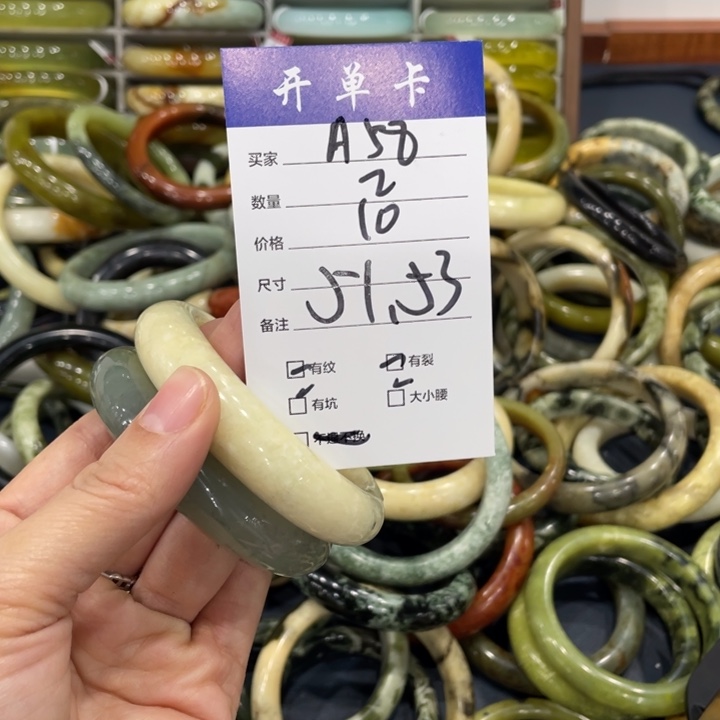 开单卡
买家 A58
数量 2
价格 10
尺寸 51.53
备注
有纹 有裂
有坑 大小腰